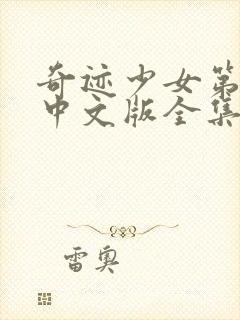 奇迹少女第
中文版全集
雷奥